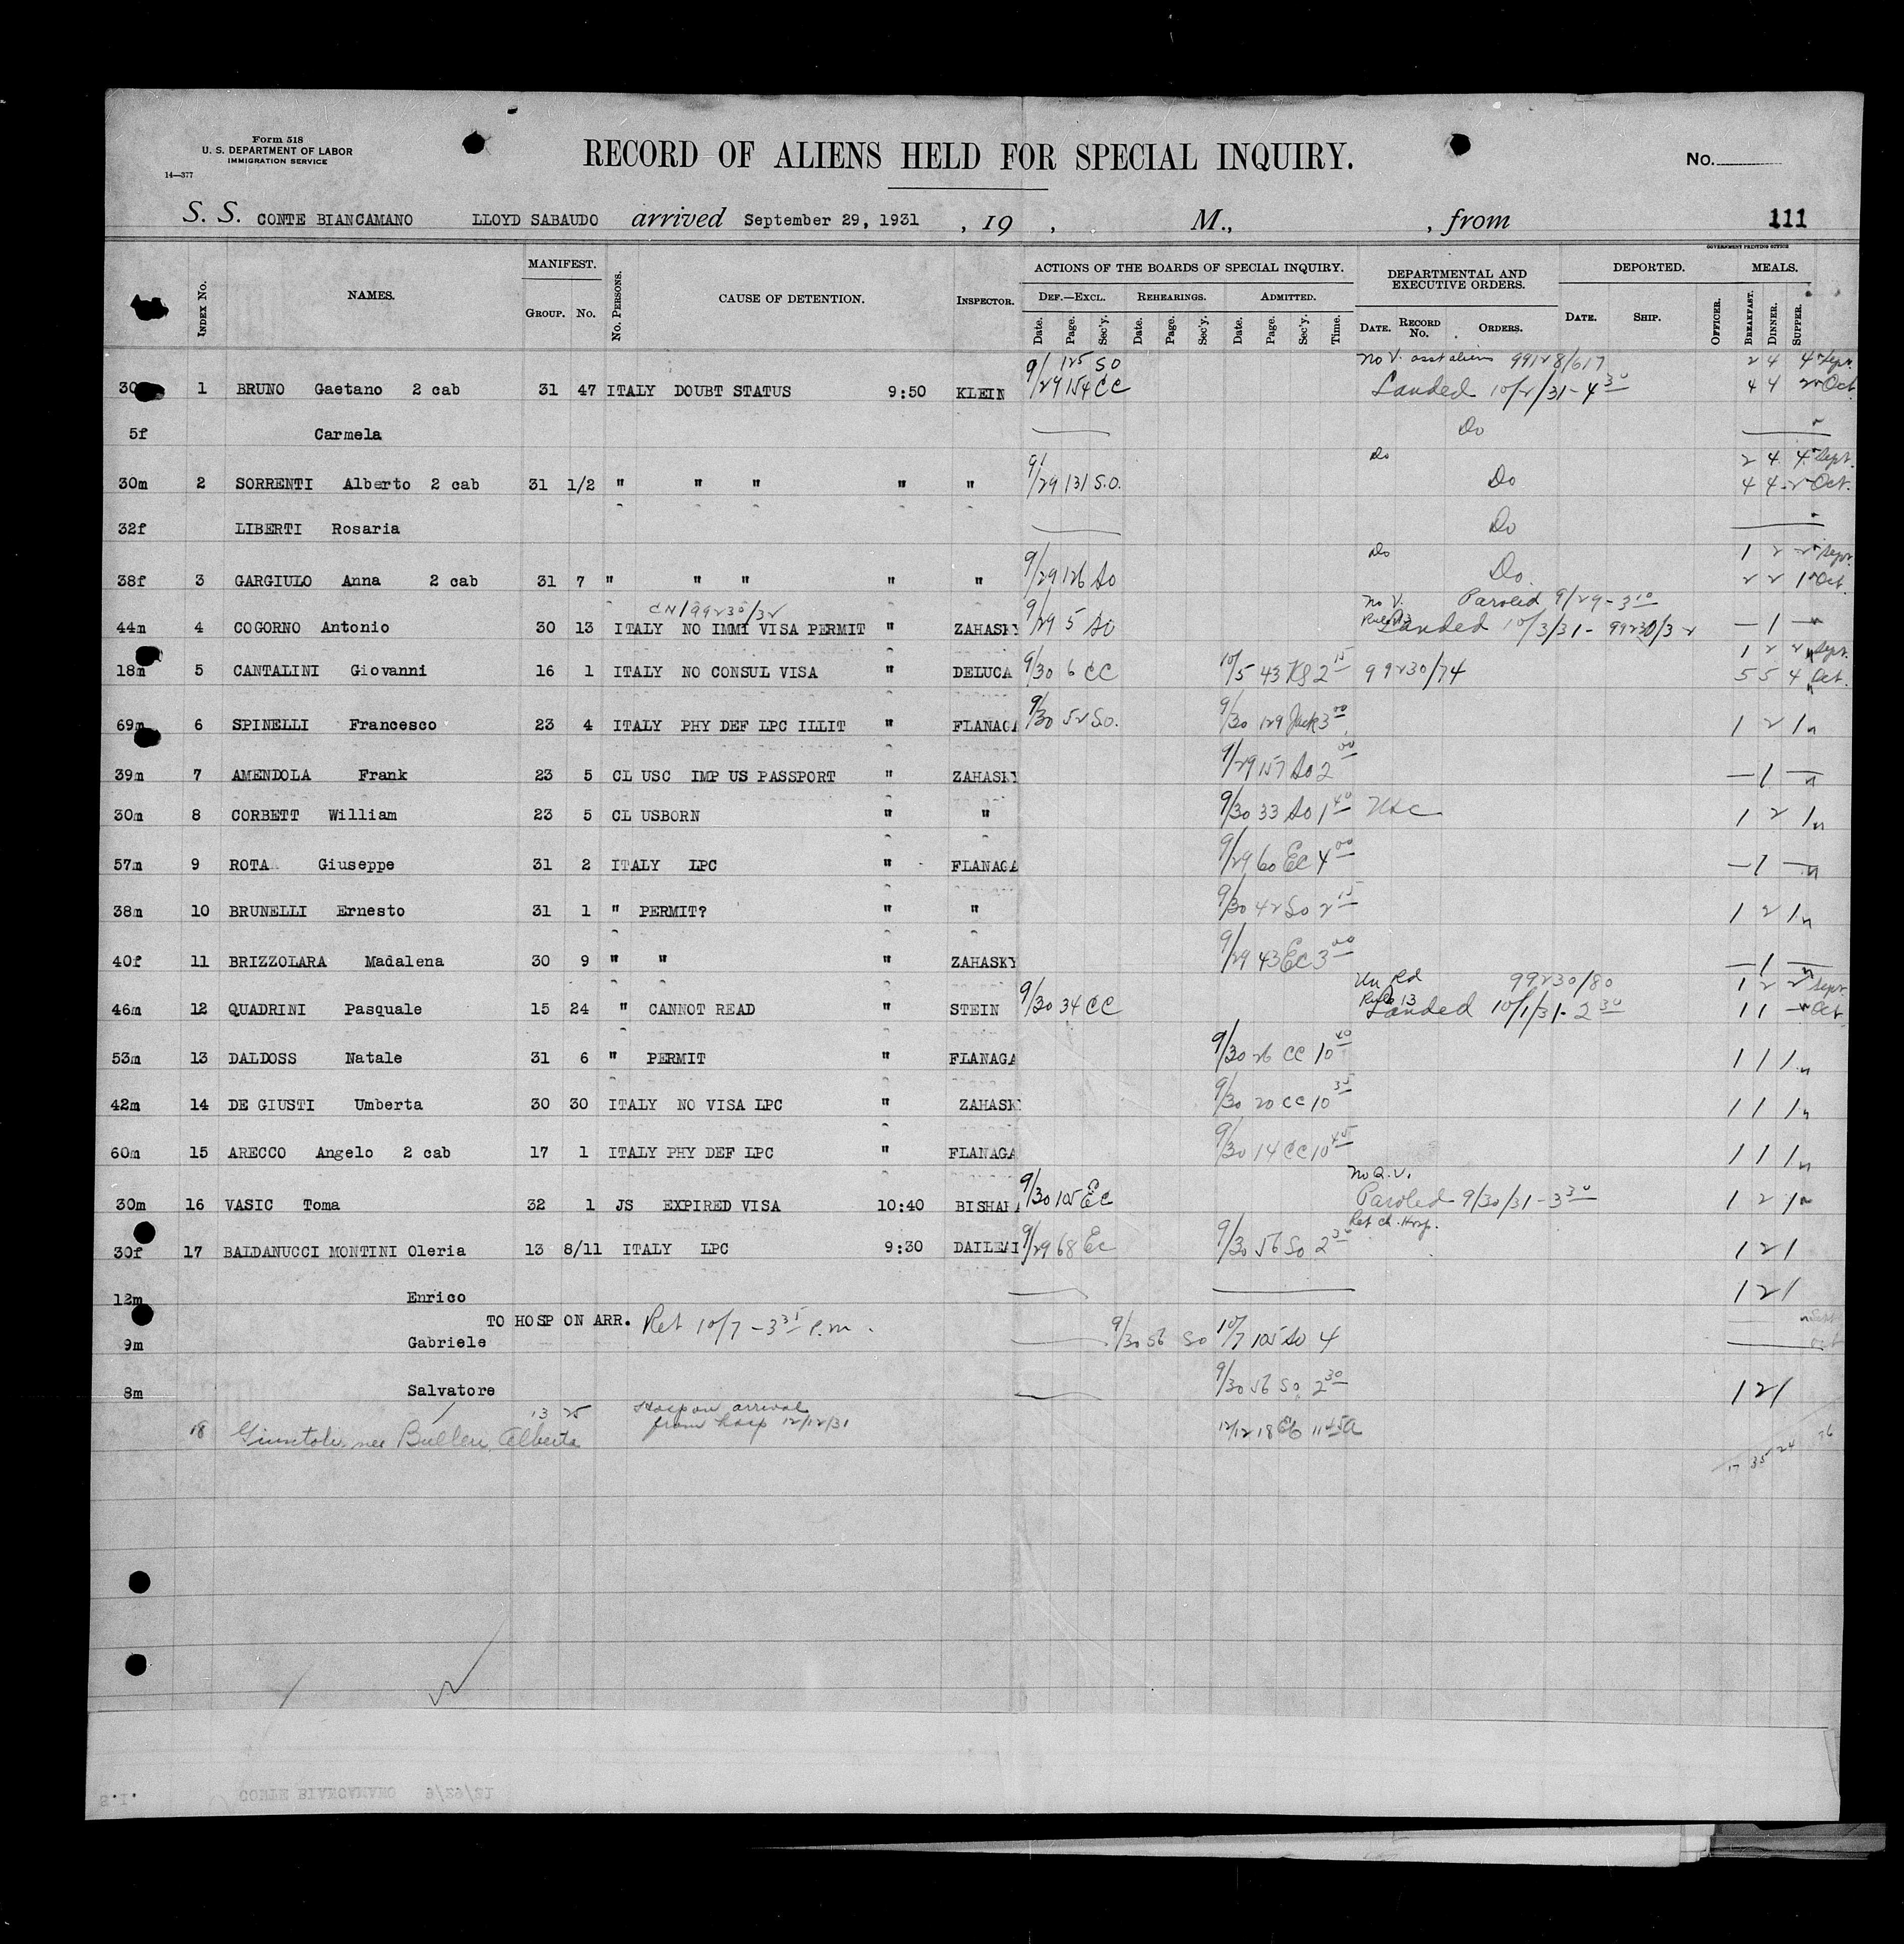 Form 518
U. S. DEPARTMENT OF LABOR
IMMIGRATION SERVICE
14—377
RECORD OF ALIENS HELD FOR SPECIAL INQUIRY.
No.
S. S. CONTE BIANCAMANO LLOYD SABAUDO arrived September 29, 1931, 19 , M., , from 111
GOVERNMENT PRINTING OFFICE
INDEX No. NAMES. MANIFEST. GROUP. No. No. PERSONS. CAUSE OF DETENTION. INSPECTOR. ACTIONS OF THE BOARDS OF SPECIAL INQUIRY. DEPARTMENTAL AND EXECUTIVE ORDERS. DEPORTED. MEALS.
DEF.—EXCL. REHEARINGS. ADMITTED.
Date. Page. Sec'y. Date. Page. Sec'y. Date. Page. Sec'y. Time. DATE. RECORD No. ORDERS. DATE. SHIP. OFFICER. BREAKFAST. DINNER. SUPPER.
9/ 125 SO No V. asst aliens 99128/617 2 4 4 Sept.
30 1 BRUNO Gaetano 2 cab 31 47 ITALY DOUBT STATUS 9:50 KLEIN /29 154 CC Landed 10/2/31 - 4 30 4 4 2 Oct.
5f Carmela Do
Do 2 4 4 Sept.
30m 2 SORRENTI Alberto 2 cab 31 1/2 " " " " " 9/29 131 S.O. Do 4 4 2 Oct.
32f LIBERTI Rosaria Do
Do 1 2 2 Sept.
38f 3 GARGIULO Anna 2 cab 31 7 " " " " " 9/29 126 SO Do. 2 2 1 Oct.
CN/99230/32 No V. Paroled 9/29 - 3 10
44m 4 COGORNO Antonio 30 13 ITALY NO IMMI VISA PERMIT " ZAHASKY 9/29 5 SO Rule 13 Landed 10/3/31 - 99230/32 — 1 —
1 2 2 Sept.
18m 5 CANTALINI Giovanni 16 1 ITALY NO CONSUL VISA " DELUCA 9/30 6 CC 10/5 43 KS 2 15 99230/74 5 5 4 Oct.
69m 6 SPINELLI Francesco 23 4 ITALY PHY DEF LPC ILLIT " FLANAGA 9/30 52 So. 9/30 129 Jack 3 00 1 2 1
39m 7 AMENDOLA Frank 23 5 CL USC IMP US PASSPORT " ZAHASKY 9/29 157 So 2 00 — 1 —
30m 8 CORBETT William 23 5 CL USBORN " " 9/30 33 So 1 40 USC 1 2 1
57m 9 ROTA Giuseppe 31 2 ITALY LPC " FLANAGA 9/29 60 EC 4 00 — 1 —
38m 10 BRUNELLI Ernesto 31 1 " PERMIT? " " 9/30 42 So 2 15 1 2 1
40f 11 BRIZZOLARA Madalena 30 9 " " " ZAHASKY 9/29 43 EC 3 00 — 1 —
Un Rd 99230/80 1 2 2 Sept.
46m 12 QUADRINI Pasquale 15 24 " CANNOT READ " STEIN 9/30 34 CC Rule 13 Landed 10/1/31 - 2 30 1 1 — Oct.
53m 13 DALDOSS Natale 31 6 " PERMIT " FLANAGA 9/30 26 CC 10 40 1 1 1
42m 14 DE GIUSTI Umberta 30 30 ITALY NO VISA LPC " ZAHASKY 9/30 20 CC 10 35 1 1 1
60m 15 ARECCO Angelo 2 cab 17 1 ITALY PHY DEF LPC " FLANAGA 9/30 14 CC 10 45 1 1 1
No Q.V.
30m 16 VASIC Toma 32 1 JS EXPIRED VISA 10:40 BISHAR 9/30 105 EC Paroled 9/30/31 - 3 30 1 2 1
Ret ch. Hosp.
30f 17 BALDANUCCI MONTINI Oleria 13 8/11 ITALY LPC 9:30 9/29 68 EC 9/30 56 So 2 30 1 2 1
12m Enrico 1 2 1
TO HOSP ON ARR. Ret 10/7 - 3 35 P.m. Sept
9m Gabriele 9/30 56 So 10/7 105 So 4 Oct
8m Salvatore 9/30 56 So 2 30 1 2 1
13 25 Hosp on arrival
18 nee Alberta from hosp 12/12/31 12/12 18 Eb 11 45 a
17 35 24 76
S.I. CONTE BIANCAMANO 9/29/31